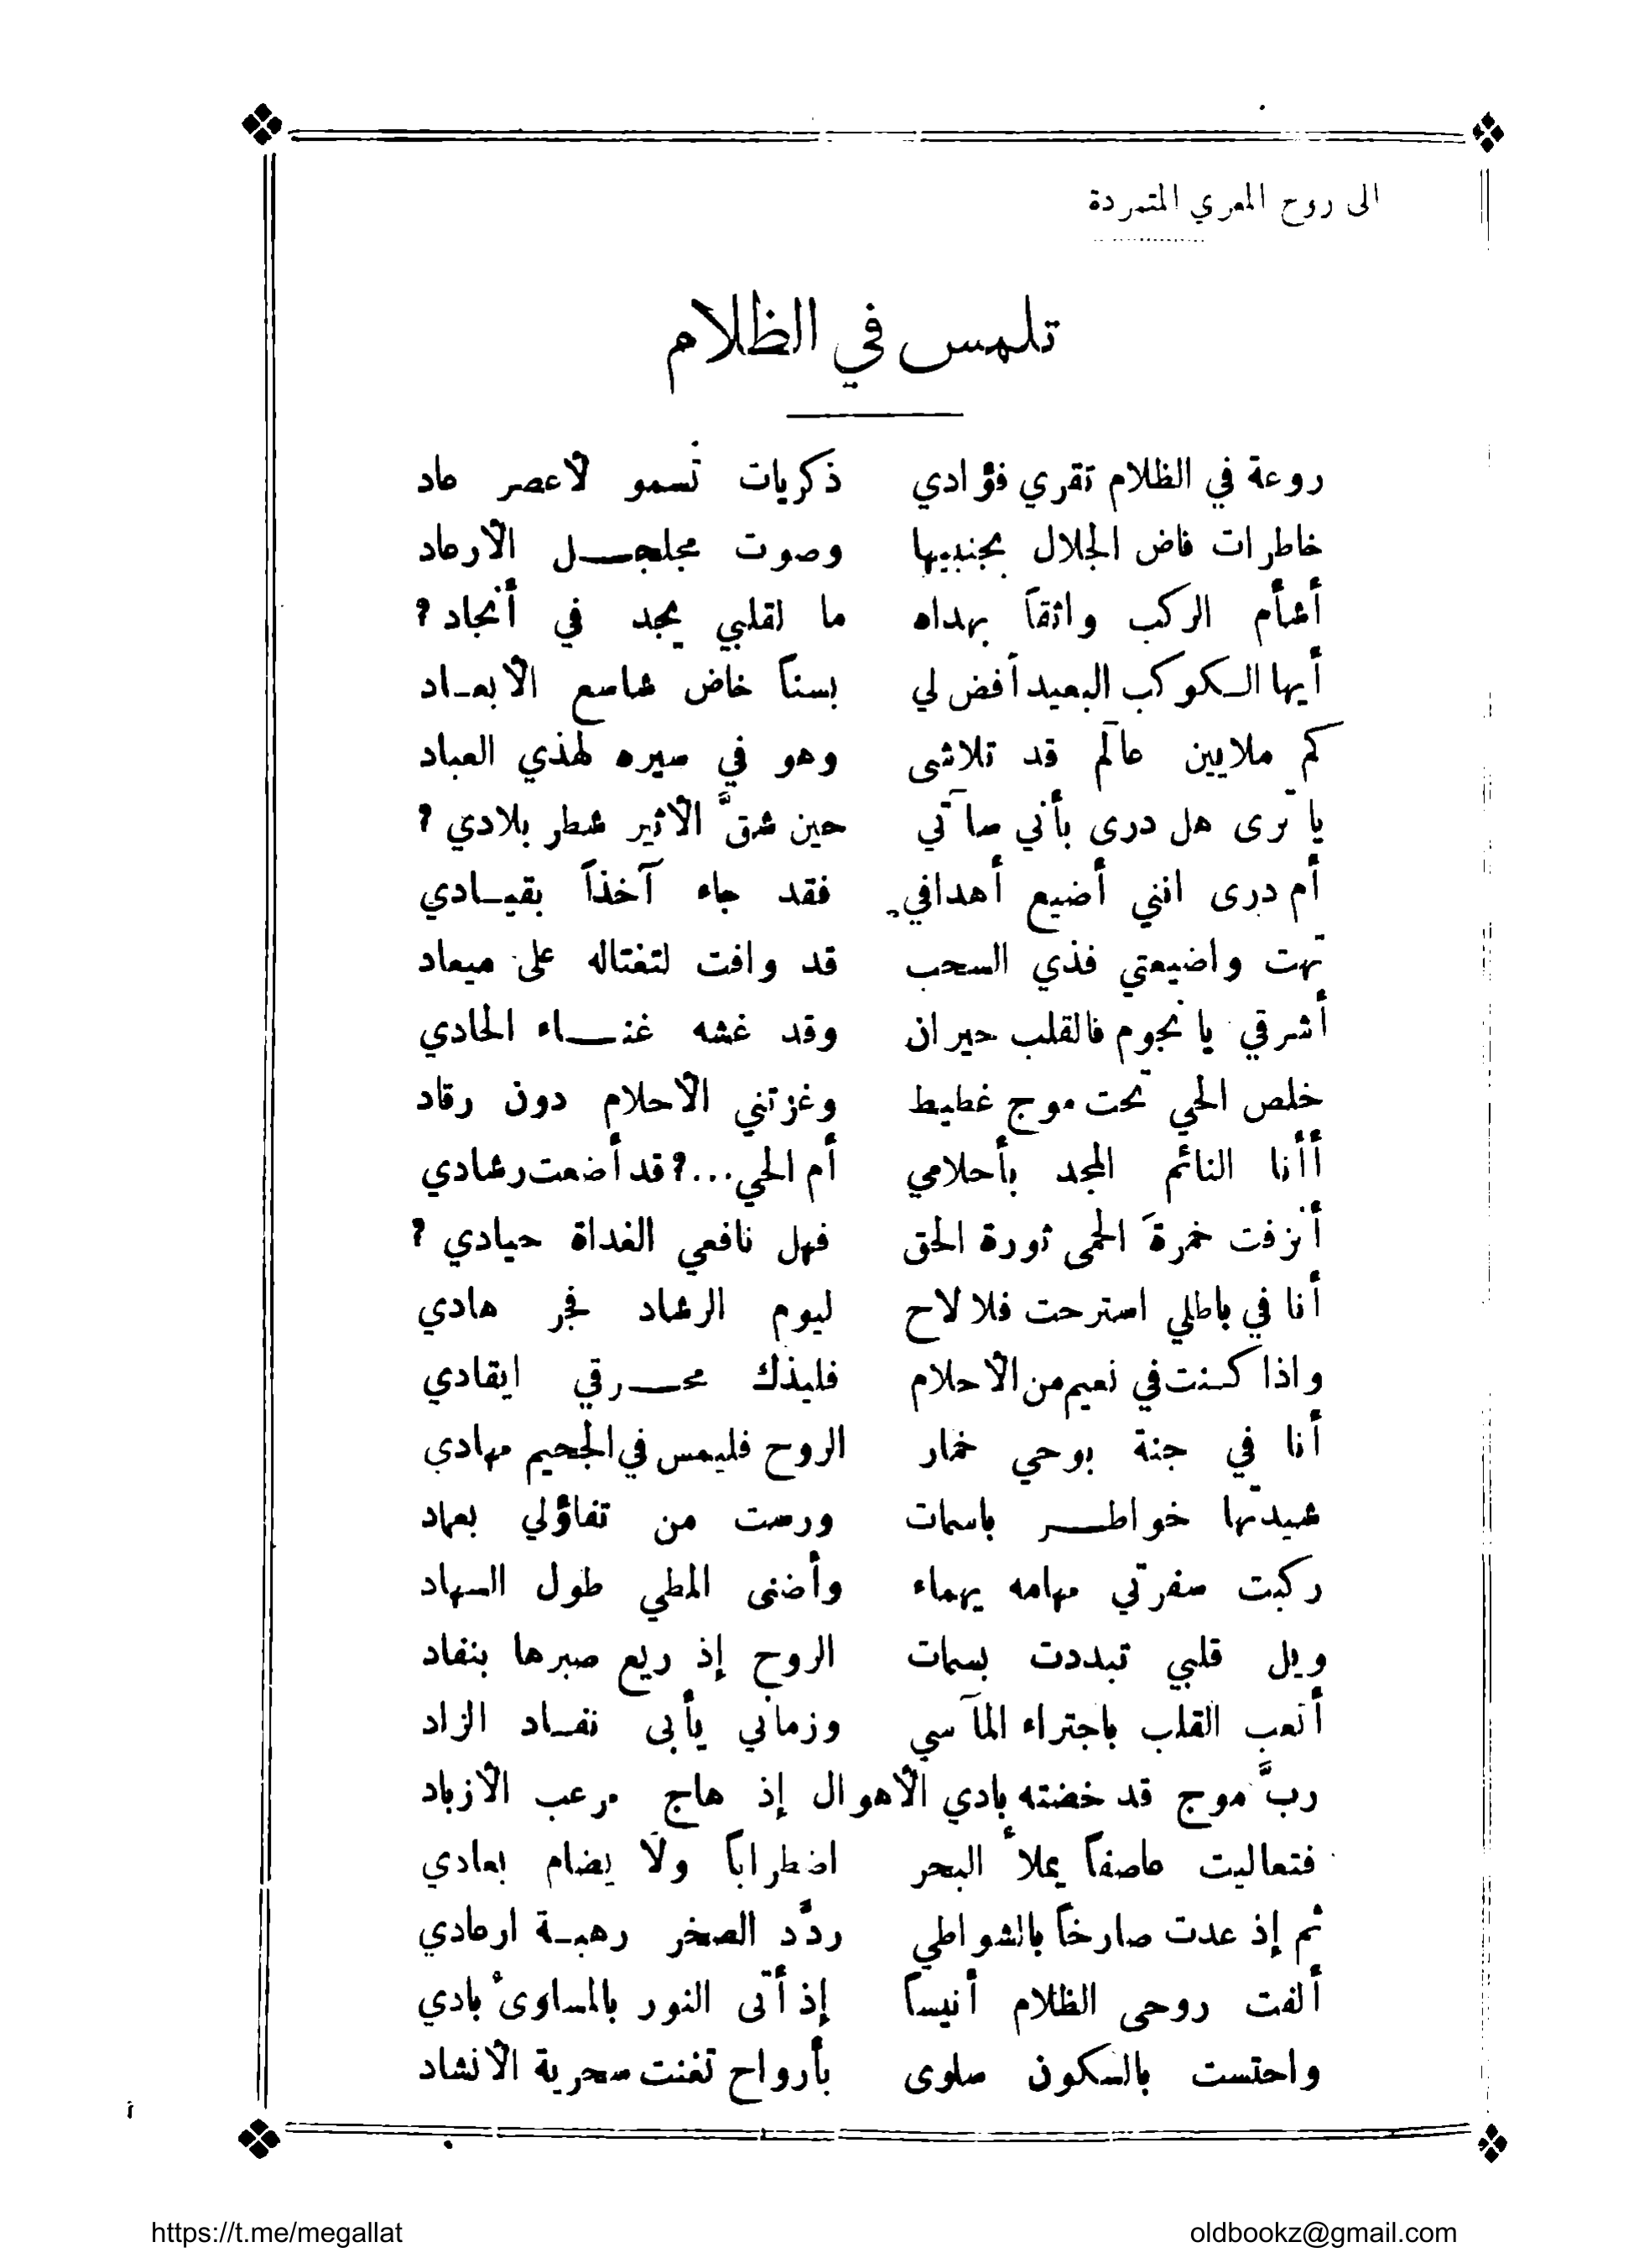 الى روح المعري المتمردة
تلمس في الظلام
روعة في الظلام تقري فؤادي ذكريات تسمو لأعصر عاد
خاطرات فاض الجلال بجنبيها وصوت مجلجل الأرعاد
أشأم الركب واثقاً بهداه ما لقلبي يجد في أنجاد ؟
أيها الكوكب البعيد أفض لي بسناً خاض شاسع الأبعاد
كم ملايين عالم قد تلاشى وهو في سيره لهذي العباد
يا ترى هل درى بأني سآتي حين شقَّ الأثير شطر بلادي ؟
أم درى انني أضيع أهدافي فقد جاء آخذاً بقيادي
تهت واضيعتي فذي السحب قد وافت لتغتاله على ميعاد
أشرقي يا نجوم فالقلب حيران وقد غشه غناء الحادي
خلص الحي تحت موج غطيط وغزتني الأحلام دون رقاد
أأنا النائم المجد بأحلامي أم الحي...؟ قد أضعت رشادي
أنزفت خمرةَ الحمى ثورة الحق فهل نافعي الغداة حيادي ؟
أنا في باطلي استرحت فلا لاح ليوم الرشاد فجر هادي
واذا كنت في نعيم من الأحلام فليذك محرقي ايقادي
أنا في جنة بوحي خمار الروح فليمس في الجحيم مهادي
شيدتها خواطر باسمات ورست من تفاؤلي بعماد
ركبت سفرتي مهامه يهماء وأضنى المطي طول السهاد
ويل قلبي تبددت بسمات الروح إذ ريع صبرها بنفاد
أتعب القلب باجتراء المآسي وزماني يأبى نفاد الزاد
ربَّ موج قد خضته بادي الأهوال إذ هاج مرعب الأزباد
فتعاليت عاصفاً يملأ البحر اضطراباً ولا يضام بعادي
ثم إذ عدت صارخاً بالشواطي ردَّد الصخر رهبة ارعادي
ألفت روحى الظلام أنيساً إذ أتى النور بالمساوىء بادي
واحتست بالسكون سلوى بأرواح تغنت سحرية الأنشاد
https://t.me/megallat oldbookz@gmail.com